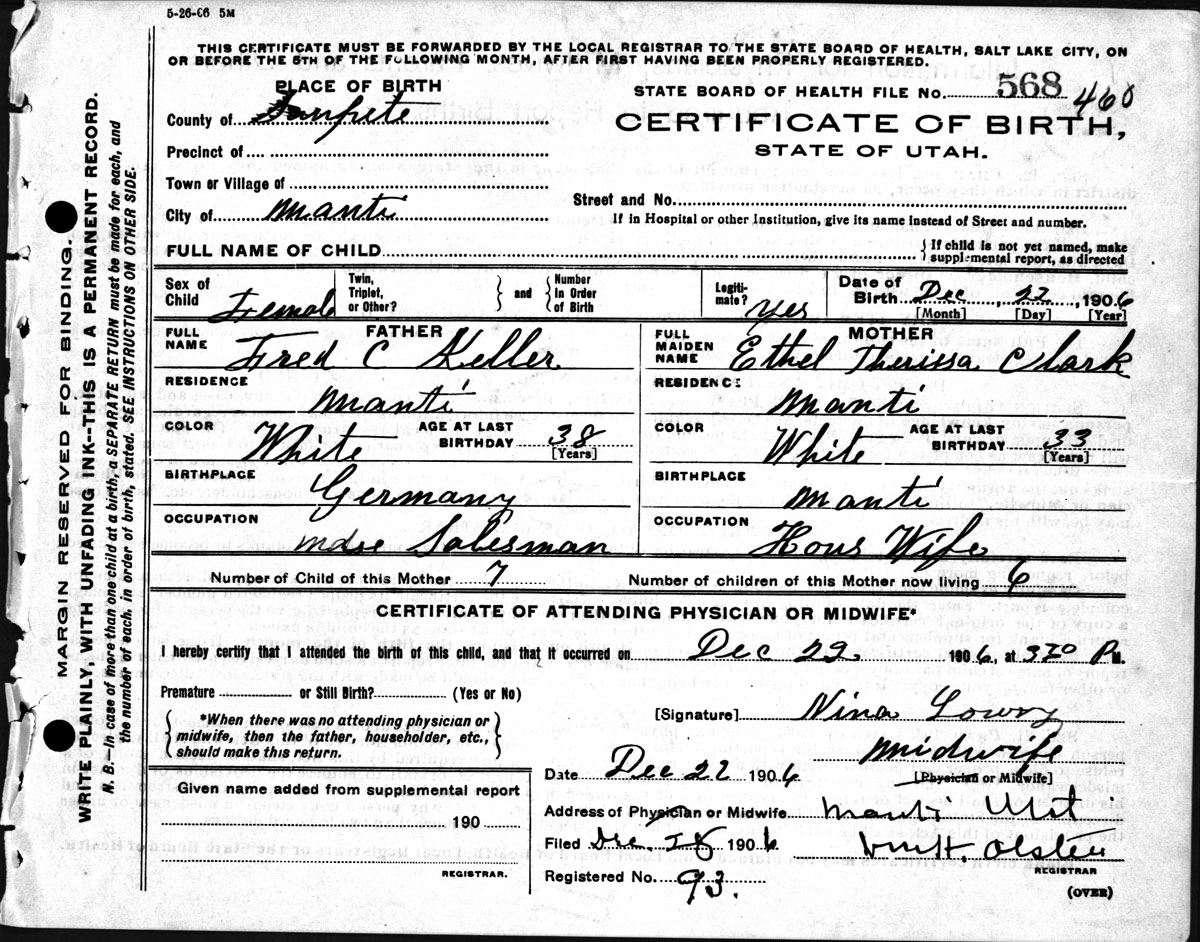 5-26-06 5M
THIS CERTIFICATE MUST BE FORWARDED BY THE LOCAL REGISTRAR TO THE STATE BOARD OF HEALTH, SALT LAKE CITY, ON
OR BEFORE THE 5TH OF THE FOLLOWING MONTH, AFTER FIRST HAVING BEEN PROPERLY REGISTERED.
PLACE OF BIRTH
County of Sanpete
Precinct of
Town or Village of
City of Manti
STATE BOARD OF HEALTH FILE No. 568 460
CERTIFICATE OF BIRTH,
STATE OF UTAH.
Street and No.
If in Hospital or other Institution, give its name instead of Street and number.
FULL NAME OF CHILD
{ If child is not yet named, make
supplemental report, as directed
Sex of Child Female
Twin, Triplet, or Other? } and { Number In Order of Birth
Legitimate? Yes
Date of Birth Dec, 22, 1906
[Month] [Day] [Year]
FATHER
FULL NAME Fred C Keller
RESIDENCE Manti
COLOR White AGE AT LAST BIRTHDAY 38 [Years]
BIRTHPLACE Germany
OCCUPATION mdse Salesman
MOTHER
FULL MAIDEN NAME Ethel Therissa Clark
RESIDENCE Manti
COLOR White AGE AT LAST BIRTHDAY 33 [Years]
BIRTHPLACE Manti
OCCUPATION Hous Wife
Number of Child of this Mother 7 Number of children of this Mother now living 6
CERTIFICATE OF ATTENDING PHYSICIAN OR MIDWIFE*
I hereby certify that I attended the birth of this child, and that it occurred on Dec 22 1906, at 330 P M.
Premature or Still Birth? (Yes or No)
{ *When there was no attending physician or
midwife, then the father, householder, etc.,
should make this return. }
[Signature] Nina Lowry
Midwife
[Physician or Midwife]
Date Dec 22 1906
Address of Physician or Midwife Manti Utah
Filed Dec. 28 1906
REGISTRAR
Registered No. 93.
(OVER)
Given name added from supplemental report
190
REGISTRAR.
MARGIN RESERVED FOR BINDING.
WRITE PLAINLY, WITH UNFADING INK--THIS IS A PERMANENT RECORD.
N. B.--In case of more than one child at a birth, a SEPARATE RETURN must be made for each, and
the number of each, in order of birth, stated. SEE INSTRUCTIONS ON OTHER SIDE.